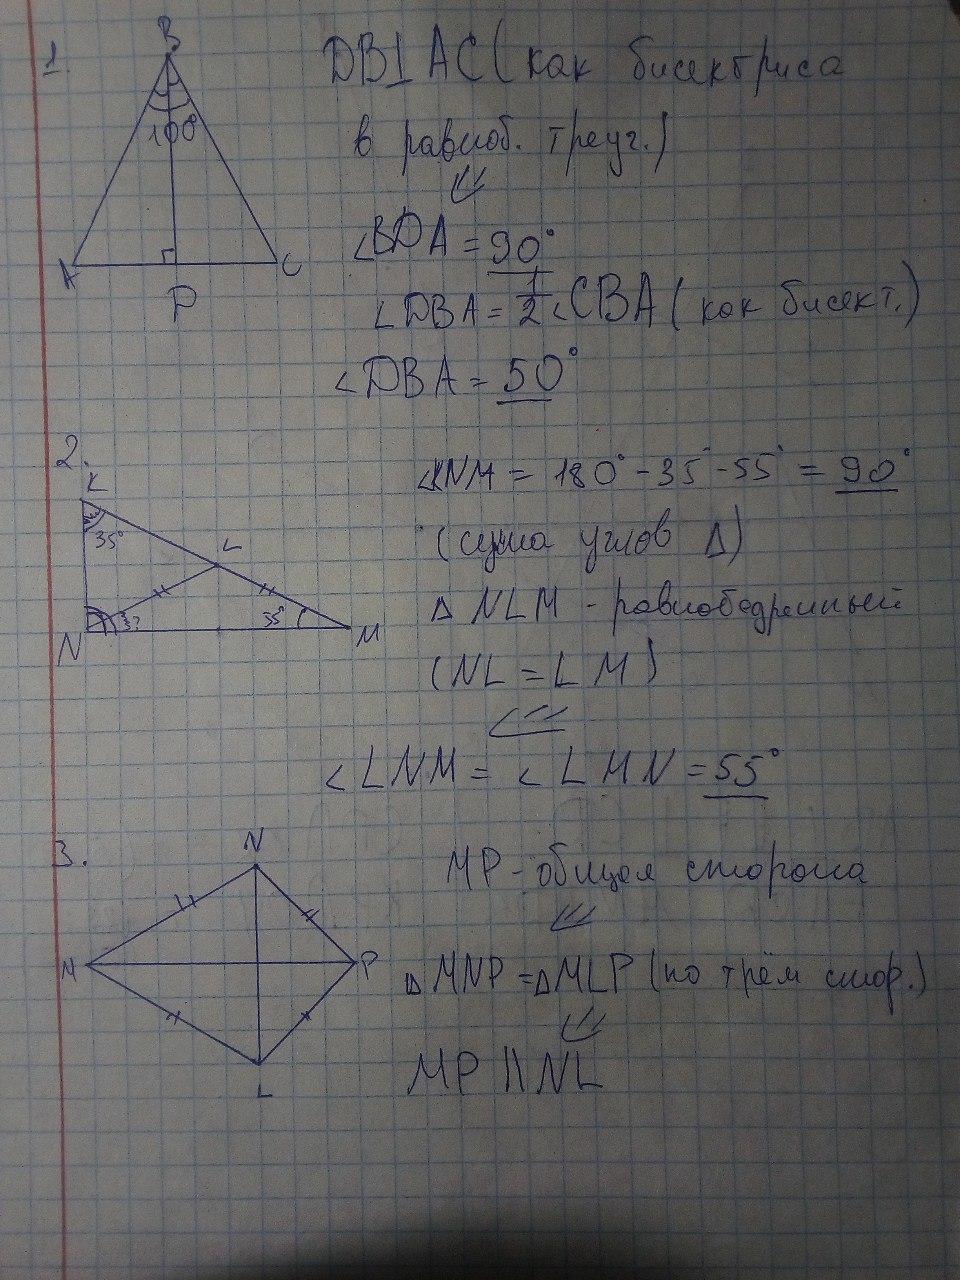 1.
B
100°
A
C
D
DB⊥AC (как бисектриса
в равноб. треуг.)
∠BDA = 90°
∠DBA = 1/2 ∠CBA (как бисект.)
∠DBA = 50°
2.
K
35°
L
N
M
∠KNM = 180° - 35° - 55° = 90°
(сумма углов Δ)
Δ NLM - равнобедренный
(NL = LM)
∠LNM = ∠LMN = 55°
3.
N
M
P
L
MP - общая сторона
ΔMNP = ΔMLP (по трём стор.)
MP || NL